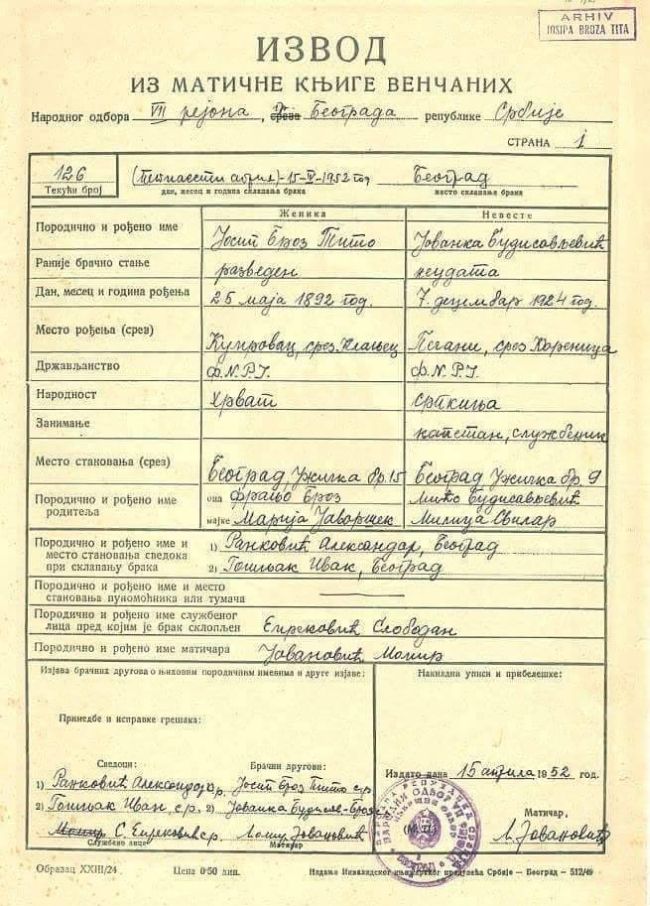 ARHIV
JOSIPA BROZA TITA
ИЗВОД
ИЗ МАТИЧНЕ КЊИГЕ ВЕНЧАНИХ
Народног одбора VII рејона, среза Београда републике Србије
СТРАНА 1
126 15-IV-1952 год Београд
Текући број дан, месец и година склапања брака место склапања брака
Женика Невесте
Породично и рођено име Јосип Броз Тито Јованка Будисављевић
Раније брачно стање разведен неудата
Дан, месец и година рођења 25 маја 1892 год. 7. децембар 1924 год.
Место рођења (срез) Купровац, срез Клањец Пећани, срез Кореница
Држављанство Ф.Н.Р.Ј. Ф.Н.Р.Ј.
Народност Хрват Српкиња
Занимање капетан, службеник
Место становања (срез) Београд, Ужичка бр. 15 Београд Ужичка бр 9
Породично и рођено име родитеља оца Фрањо Броз Мићо Будисављевић
мајке Марија Јаворшек Милица Свилар
Породично и рођено име и 1) Ранковић Александар, Београд
место становања сведока
при склапању брака 2) Гошњак Иван, Београд
Породично и рођено име и место
становања пуномоћника или тумача
Породично и рођено име службеног
лица пред којим је брак склопљен Слободан
Породично и рођено име матичара Јовановић Момир
Изјава брачних другова о њиховим породичним именима и друге изјаве: Накнадна уписи и прибелешке:
Примедбе и исправке грешака:
Сведоци: Брачни другови: Издато дана 15 априла 1952 год.
1) Ранковић Александар, Јосип Броз Тито с.р.
2) Гошњак Иван с.р. 2) Јованка Будисав-Броз
Момир С. с.р. Момир Јовановић
Службено лице Матичар
Матичар,
М. Јовановић
Образац XXIII/24 Цена 0·50 дин. Издање Инвалидског књижарског предузећа Србије – Београд – 512/49